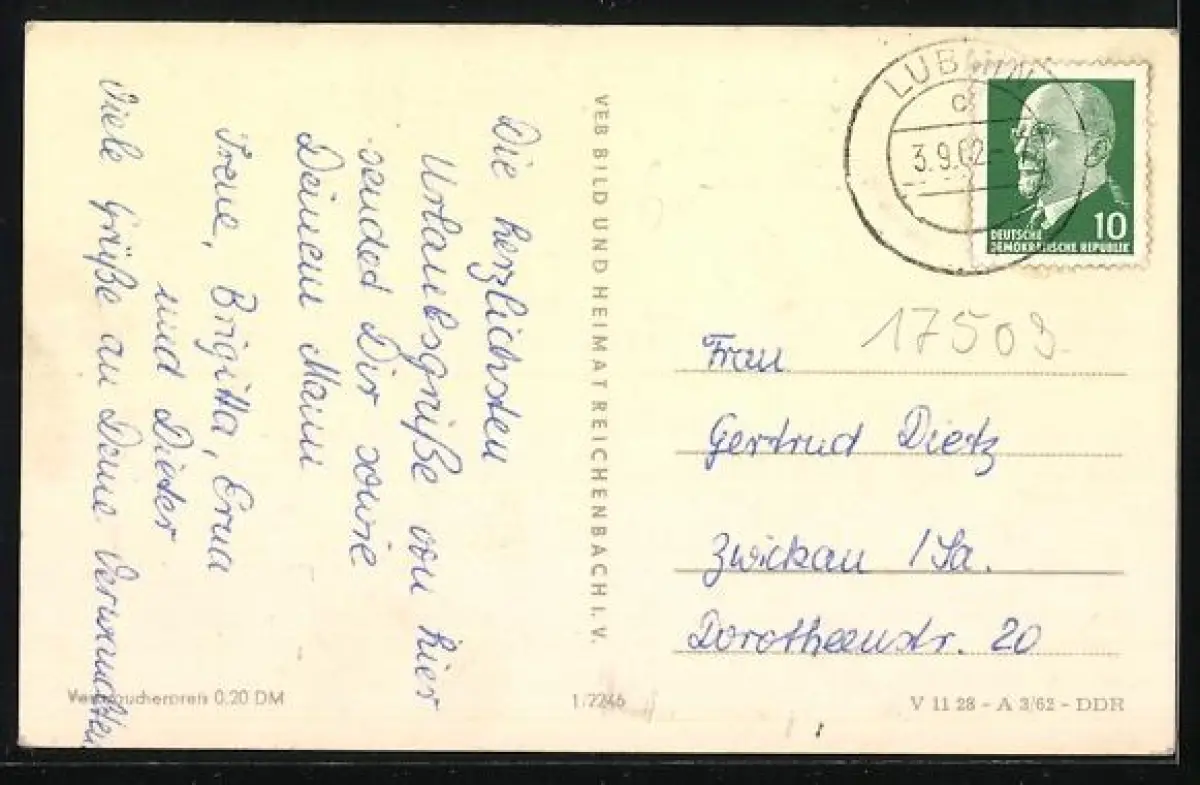 Die herzlichsten
Urlaubsgrüße von hier
sended Dir sowie
Deinem Mann
Irene, Brigitta, Erna
und Dieter
Viele Grüße an Deine Verwandten
VEB BILD UND HEIMAT REICHENBACH I. V.
3.9.62
10
DEUTSCHE
DEMOKRATISCHE REPUBLIK
17509
Frau
Gertrud Dietz
Zwickau /Sa.
Dorotheenstr. 20
Verbraucherpreis 0,20 DM
1/2246
V 11 28 - A 3/62 - DDR